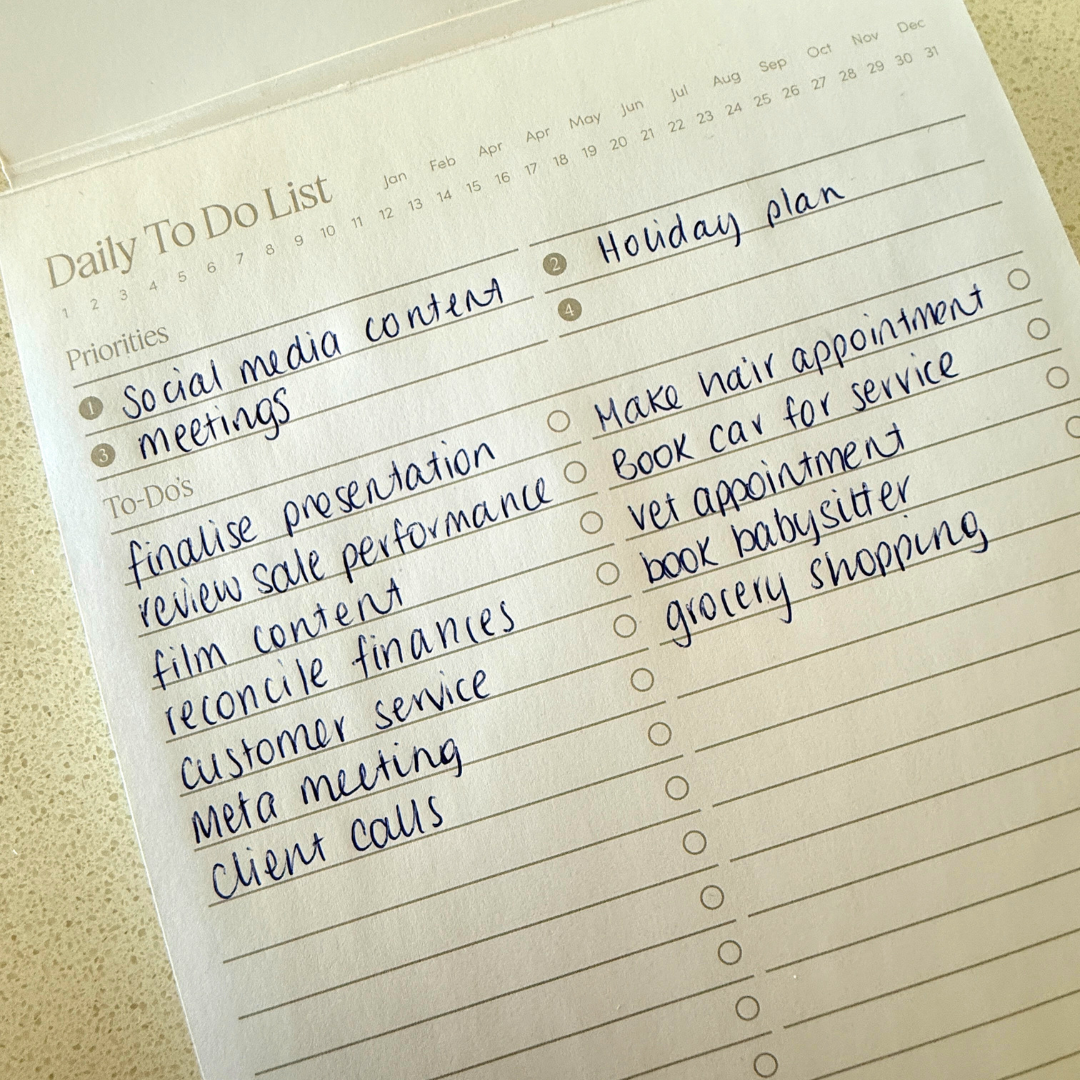 Daily To Do List
Jan Feb Apr Apr May Jun Jul Aug Sep Oct Nov Dec
1 2 3 4 5 6 7 8 9 10 11 12 13 14 15 16 17 18 19 20 21 22 23 24 25 26 27 28 29 30 31
Priorities
1 Social media content
2 Holiday plan
3 meetings
4
To-Do's
finalise presentation
review sale performance
film content
reconcile finances
customer service
Meta meeting
Client calls
Make hair appointment
Book car for service
vet appointment
book babysitter
grocery shopping